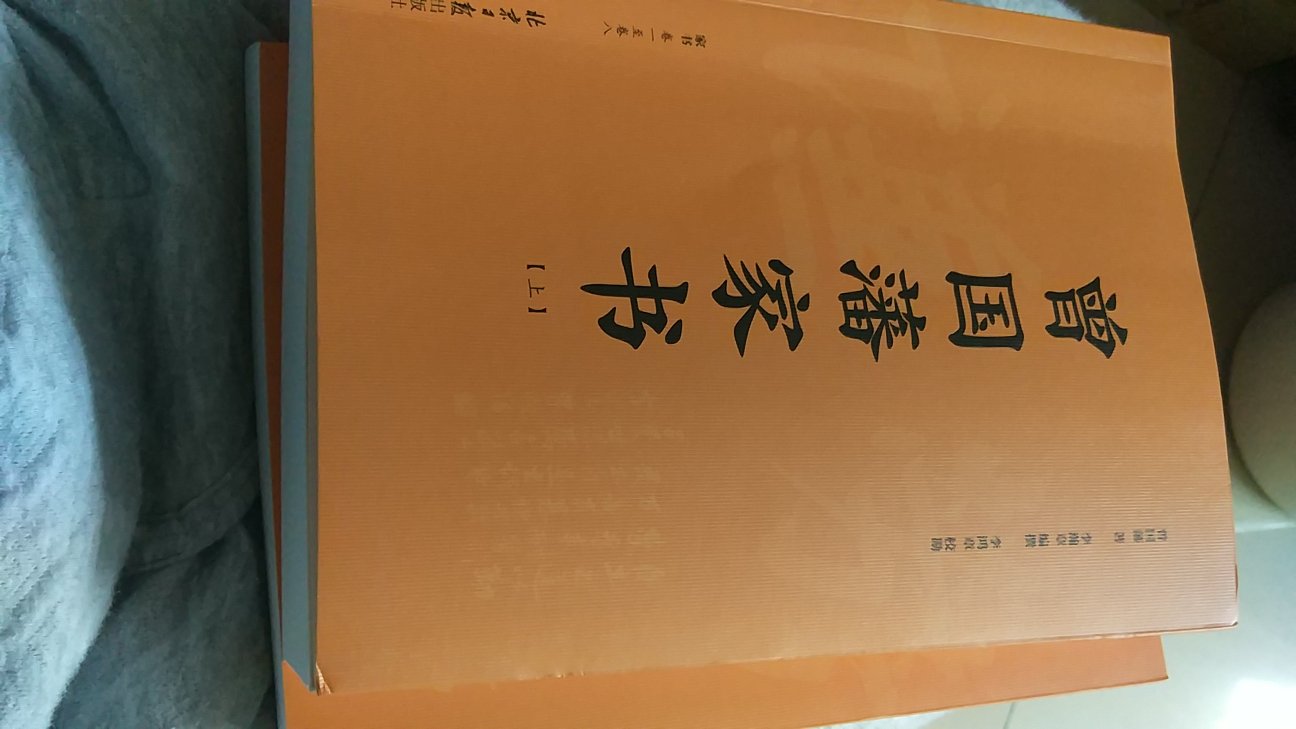 曾国藩家书
【上】
曾国藩 著
李瀚章 编撰
李鸿章 校勘
家书 卷一至卷八
北京日报出版社